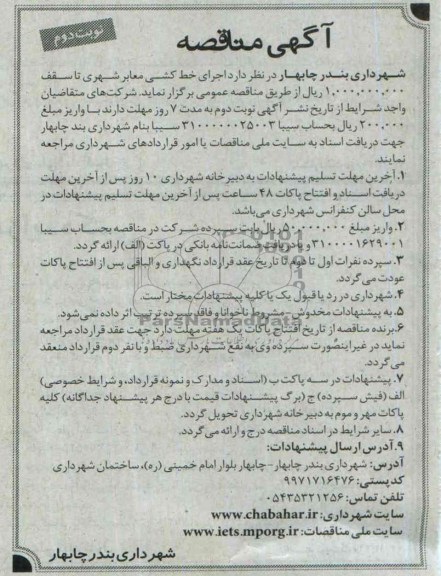 نوبت دوم
آگهی مناقصه
شهرداری بندر چابهار در نظر دارد اجرای خط کشی معابر شهری تا سقف
۱۰,۰۰۰,۰۰۰,۰۰۰ ریال از طریق مناقصه عمومی برگزار نماید. شرکت‌های متقاضیان
واجد شرایط از تاریخ نشر آگهی نوبت دوم به مدت ۷ روز مهلت دارند با واریز مبلغ
۲۰۰,۰۰۰ ریال بحساب سیبا ۳۱۰۰۰۰۰۰۲۵۰۰۳ سیبا بنام شهرداری بند چابهار
جهت دریافت اسناد به سایت ملی مناقصات یا امور قراردادهای شهرداری مراجعه
نمایند.
۱. آخرین مهلت تسلیم پیشنهادات به دبیرخانه شهرداری ۱۰ روز پس از آخرین مهلت
دریافت اسناد و افتتاح پاکات ۴۸ ساعت پس از آخرین مهلت تسلیم پیشنهادات در
محل سالن کنفرانس شهرداری می‌باشد.
۲. واریز مبلغ ۵۰,۰۰۰,۰۰۰ ریال بابت سپرده شرکت در مناقصه بحساب سیبا
۳۱۰۰۰۰۱۶۲۹۰۰۱ و یا دریافت ضمانت‌نامه بانکی در پاکت (الف) ارائه گردد.
۳. سپرده نفرات اول تا سوم تا تاریخ عقد قرارداد نگهداری و الباقی پس از افتتاح پاکات
عودت می‌گردد.
۴. شهرداری در رد یا قبول یک یا کلیه پیشنهادات مختار است.
۵. به پیشنهادات مخدوش-مشروط ناخوانا و فاقد سپرده ترتیب اثر داده نمی‌شود.
۶. برنده مناقصه از تاریخ افتتاح پاکات یک هفته مهلت دارد جهت عقد قرارداد مراجعه
نماید در غیر اینصورت سپرده وی به نفع شهرداری ضبط و با نفر دوم قرارداد منعقد
می گردد.
۷. پیشنهادات در سه پاکت ب (اسناد و مدارک و نمونه قرارداد، و شرایط خصوصی)
الف (فیش سپرده) ج (برگ پیشنهادات قیمت با درج هر پیشنهاد جداگانه) کلیه
پاکات مهر و موم به دبیرخانه شهرداری تحویل گردد.
۸. سایر شرایط در اسناد مناقصه درج و ارائه می‌گردد.
۹. آدرس ارسال پیشنهادات:
آدرس: شهرداری بندر چابهار-چابهار بلوار امام خمینی (ره)، ساختمان شهرداری
کدپستی: ۹۹۷۱۷۱۶۴۷۶
تلفن تماس: ۰۵۴۳۵۳۲۱۲۵۶
سایت شهرداری: www.chabahar.ir
سایت ملی مناقصات: www.iets.mporg.ir
شهرداری بندر چابهار